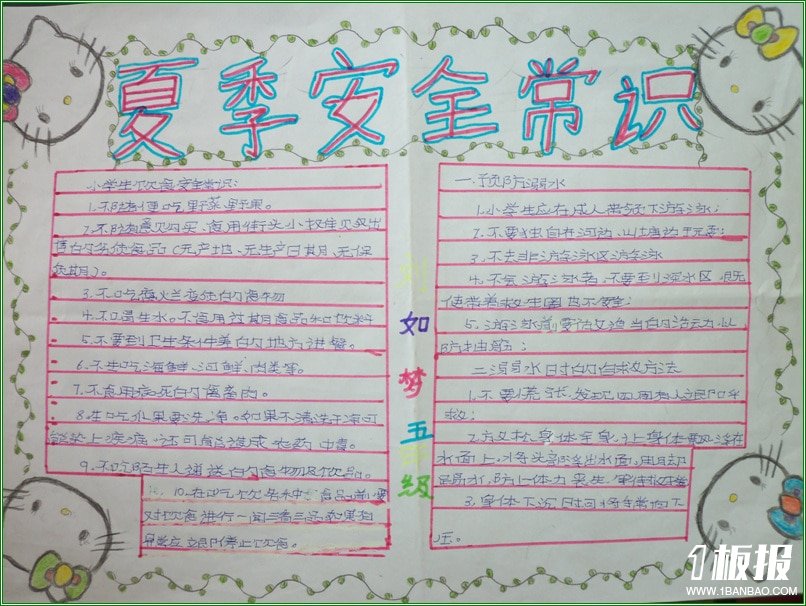 夏季安全常识
小学生饮食安全常识:
1.不随便吃野菜野果。
2.不随意购买、食用街头小摊贩出
售的劣质食品(无产地、无生产日期、无保
质期)。
3.不吃腐烂变质的食物
4.不喝生水。不食用过期食品和饮料
5.不要到卫生条件差的地方进餐。
6.不生吃海鲜、河鲜、肉类等。
7.不食用病死的禽畜肉。
8.生吃水果要洗净。如果不清洗干净可
能染上疾病,还可能造成农药中毒。
9.不吃陌生人递送的食物及饮品。
10.在吃饮
对饮食进行一闻二看三品,如果有
异常应立即停止饮食。
如梦五年级
一.预防溺水
1.小学生应在成人带领下游泳;
2.不要独自在河边、山塘边玩耍;
3.不去非游泳区游泳
4.不会游泳者,不要到深水区,
使带着救生圈也不安全;
5.游泳前要做适当的活动,以
防抽筋;
二溺水时的自救方法
1.不要慌张,发现四周有人立即呼
救;
2.放松身体全身,让身体飘浮在
水面上,将头部浮出水面,用脚
踢水,防止体力丧失,等待救援
3.身体下沉时可将手掌向下
压。
1板报
WWW.1BANBAO.COM